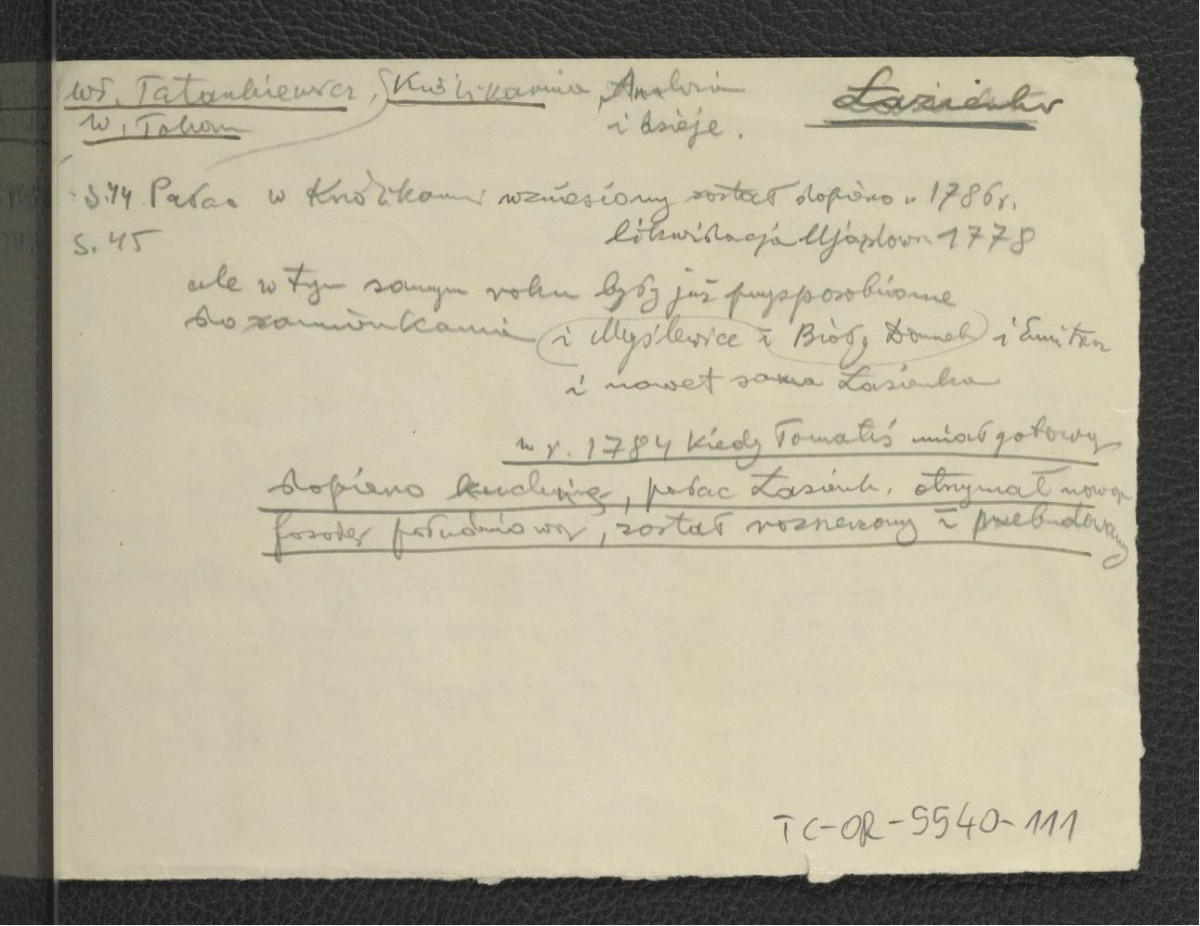 Wł. Tatarkiewicz, Królikarnia, Analiza Łazienki
W. Tokarz i dzieje.
s. 44 Pałac w Królikarni wzniesiony został dopiero w 1786 r.
s. 45 likwidacja Ujazdowa 1778
ale w tym samym roku były już przysposobione
do zamieszkania i Myślewice i Biały Domek i Ermitaż
i nawet sama Łazienka
w r. 1784 kiedy Tomatis miał gotową
dopiero kuchnię, pałac Łazienk. otrzymał nową
fasadę południową, został rozszerzony i przebudowany
TC-OR-5540-111